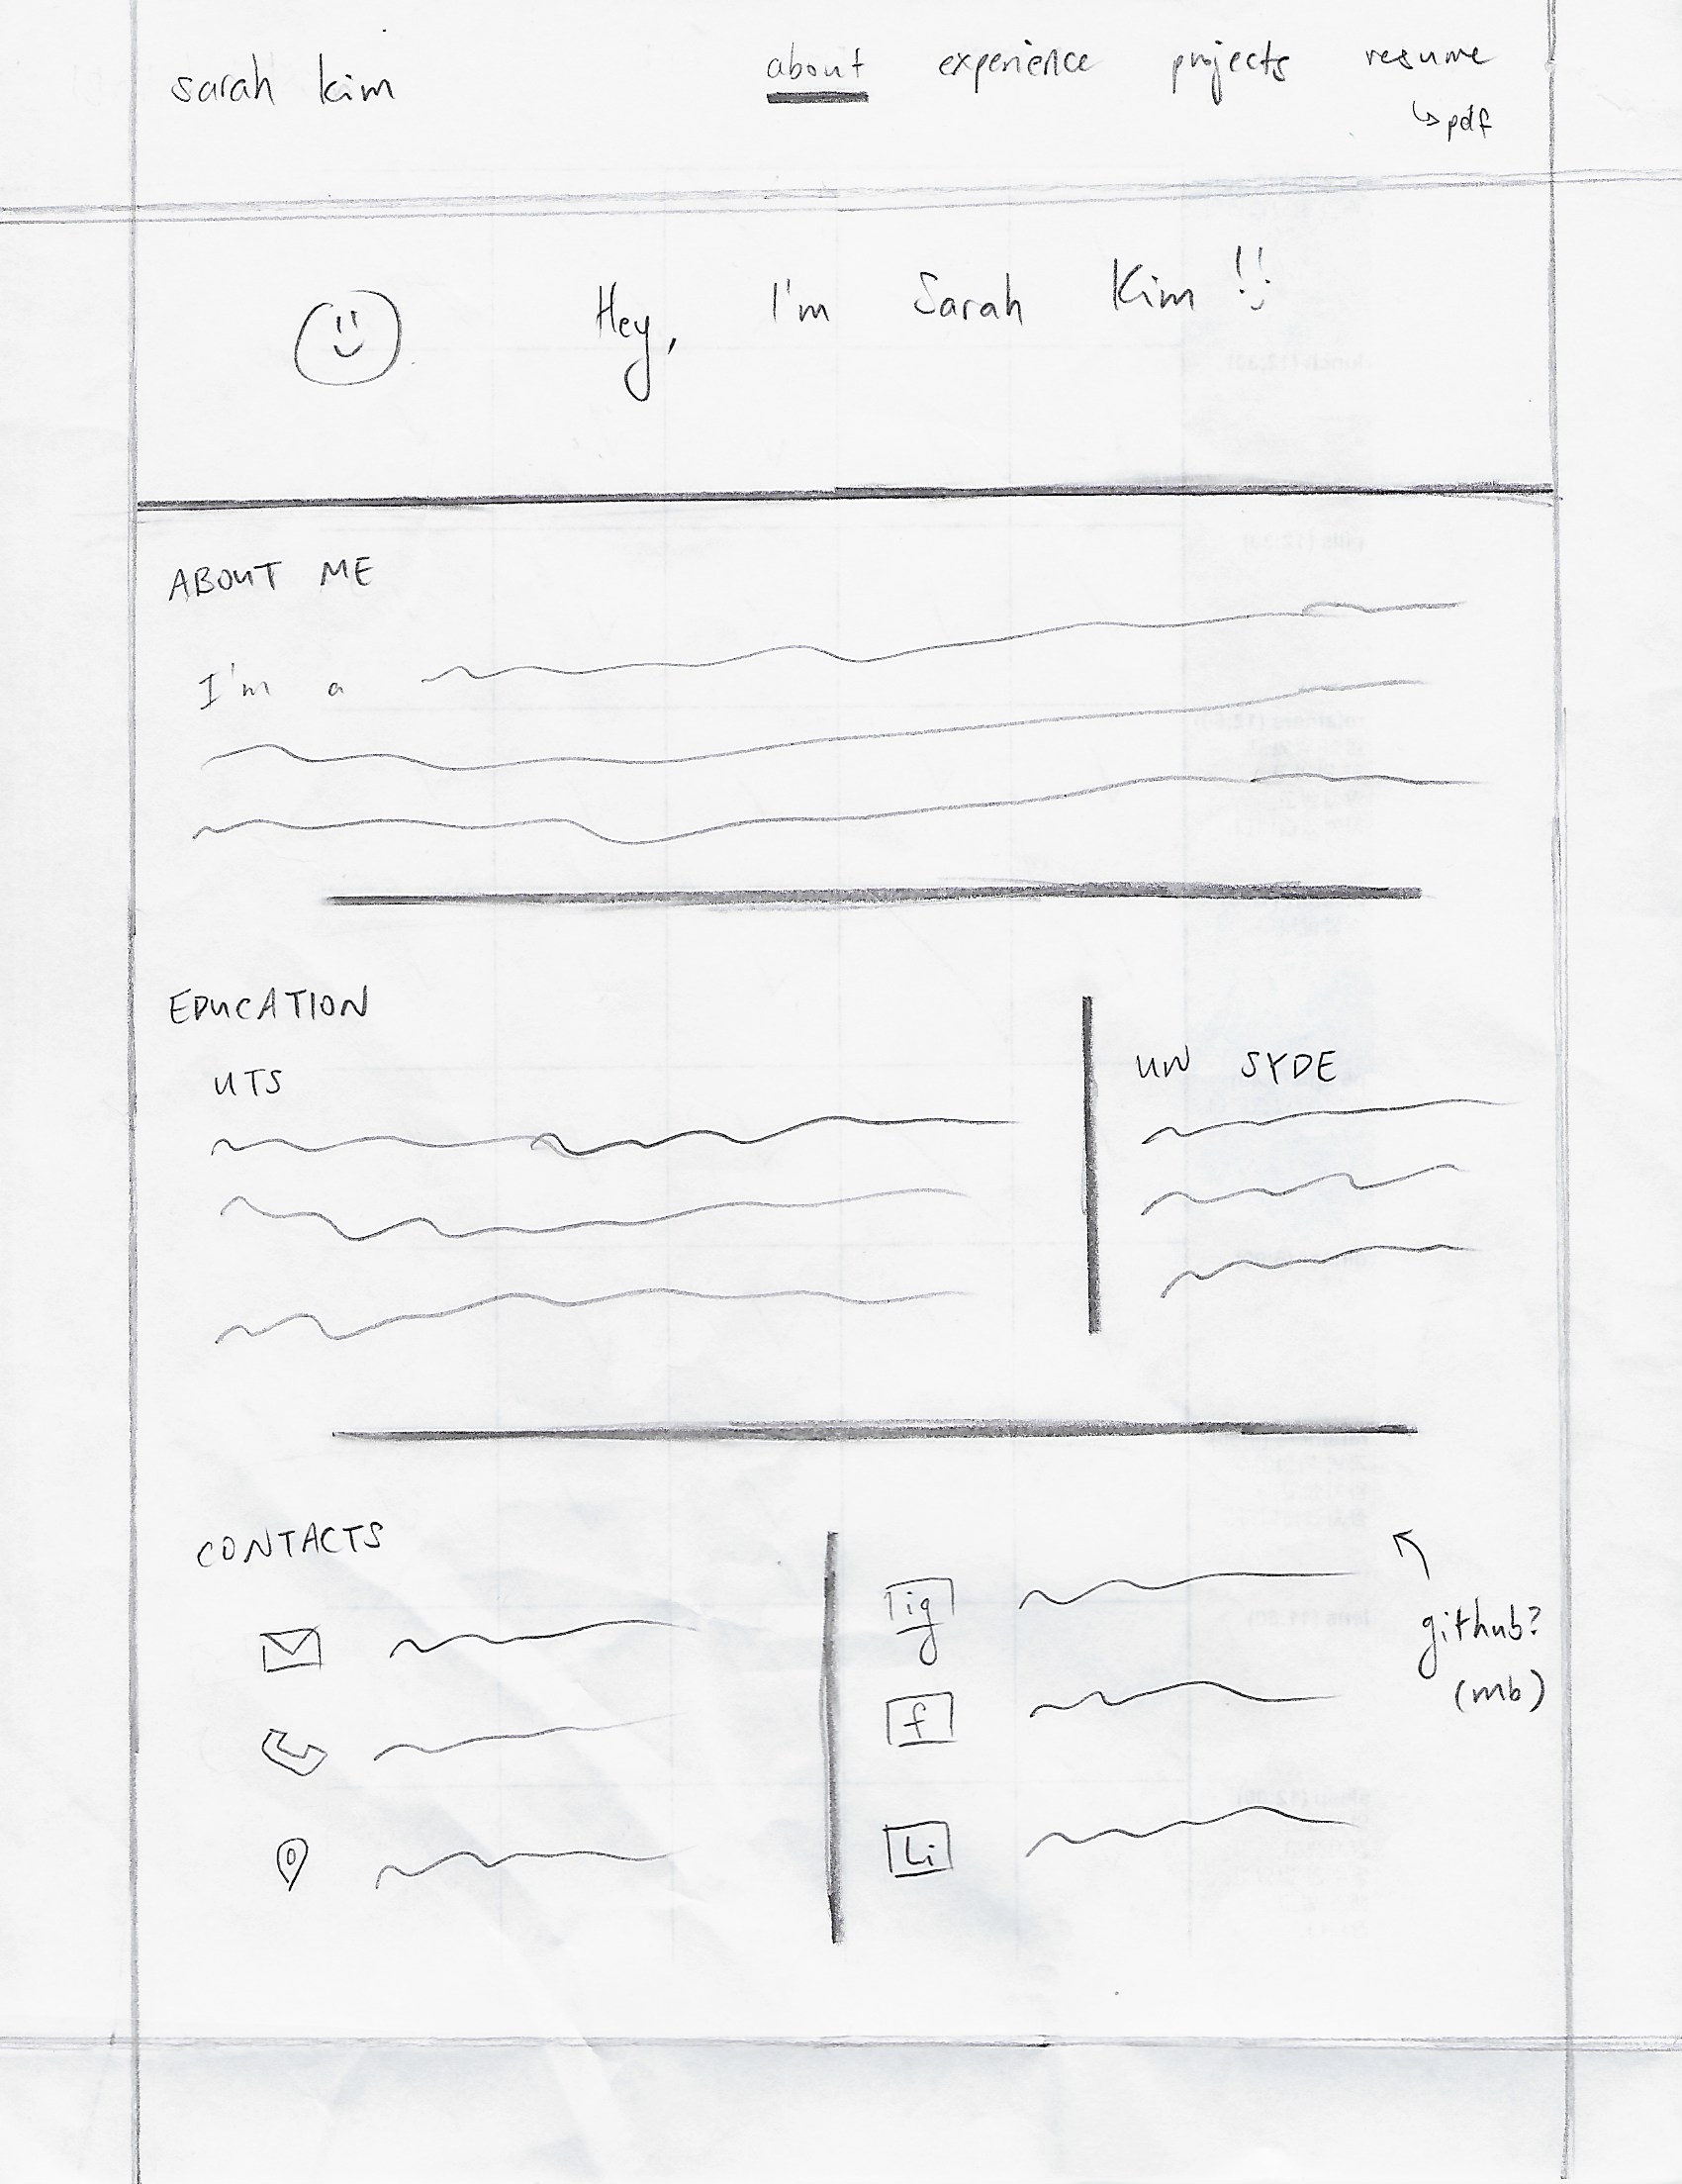 sarah kim
about experience projects resume
↳ pdf
Hey, I'm Sarah Kim !!
ABOUT ME
I'm a
EDUCATION
UTS
UW SYDE
CONTACTS
ig
f
Li
github?
(mb)